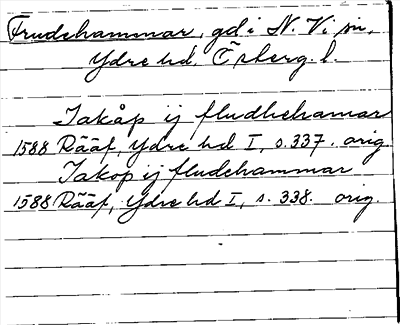 Frudehammar, gd i N. Vi sn,
Ydre hd. Österg. l.
Jakåp ij fludhehamar
1588 Rääf, Ydre hd I, s. 337. orig.
Jakop ij fludehammar
1588 Rääf, Ydre hd I, s. 338. orig.